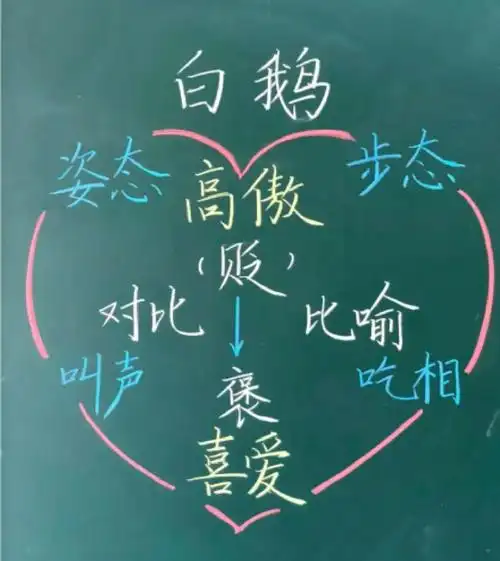 白鹅
姿态 步态
高傲
(贬)
对比 比喻
叫声 吃相
褒
喜爱